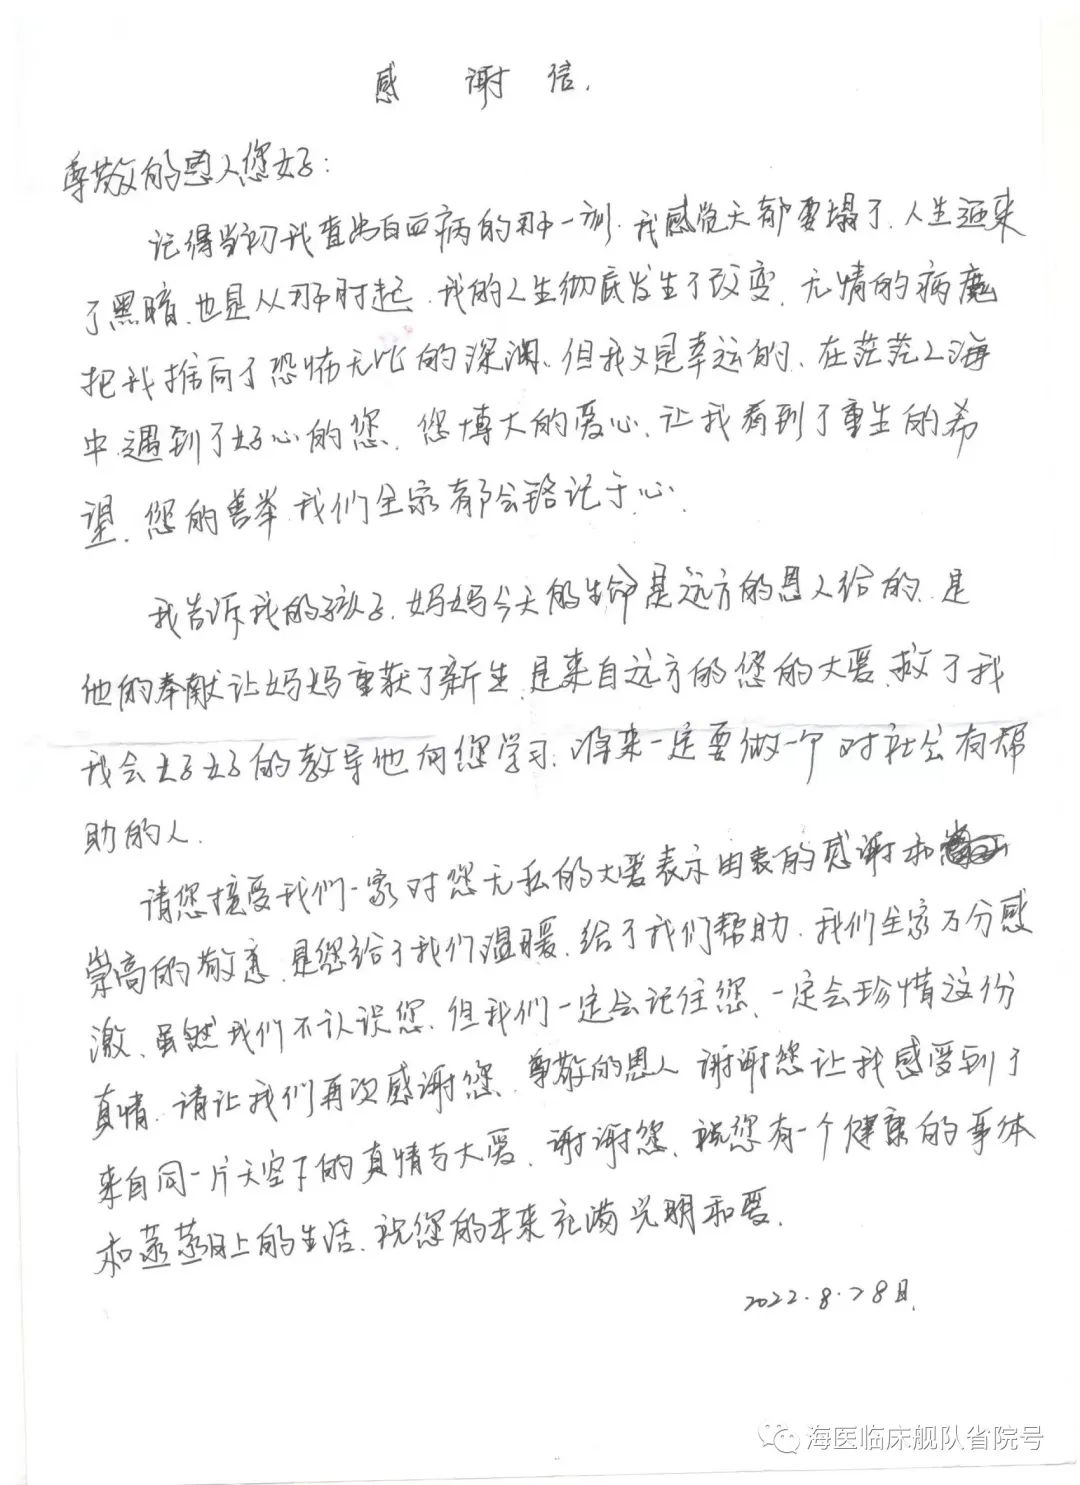 感谢信.
尊敬的恩人您好:
记得当初我查出白血病的那一刻.我感觉天都要塌了.人生迎来
了黑暗.也是从那时起.我的人生彻底发生了改变.无情的病魔
把我推向了恐怖无比的深渊.但我又是幸运的.在茫茫人海
中.遇到了好心的您.您博大的爱心.让我看到了重生的希
望.您的善举.我们全家都会铭记于心.
我告诉我的孩子.妈妈今天的生命是远方的恩人给的.是
他的奉献让妈妈重获了新生.是来自远方的您的大爱.救了我
我会好好的教导他向您学习.将来一定要做一个对社会有帮
助的人.
请您接受我们一家对您无私的大爱表示由衷的感谢和
崇高的敬意.是您给了我们温暖.给了我们帮助.我们全家万分感
激.虽然我们不认识您.但我们一定会记住您.一定会珍惜这份
真情.请让我们再次感谢您.尊敬的恩人谢谢您让我感受到了
来自同一片天空下的真情与大爱.谢谢您.祝您有一个健康的身体
和蒸蒸日上的生活.祝您的未来充满光明和爱.
2022.8.28日.
海医临床舰队省院号